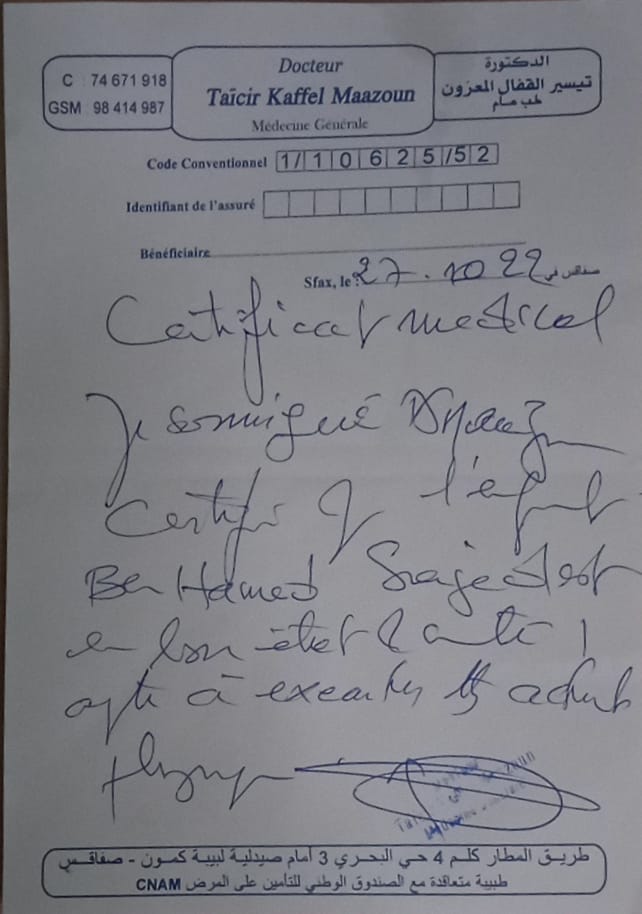 C 74 671 918
GSM : 98 414 987
Docteur
Taïcir Kaffel Maazoun
Médecine Générale
الدكتورة
تيسير القفال المعزون
طب عام
Code Conventionnel 1/10625/52
Identifiant de l'assuré
Bénéficiaire
Sfax, le : 27.10 22 صفاقس في
Certificat medical
Je soussigné
Certifie l'enfant
Ben Hamed est
en bon état santé
apte à executer activité
physique
طريق المطار كلم 4 حي البحري 3 أمام صيدلية لبيبة كمون - صفاقس
طبيبة متعاقدة مع الصندوق الوطني للتأمين على المرض CNAM